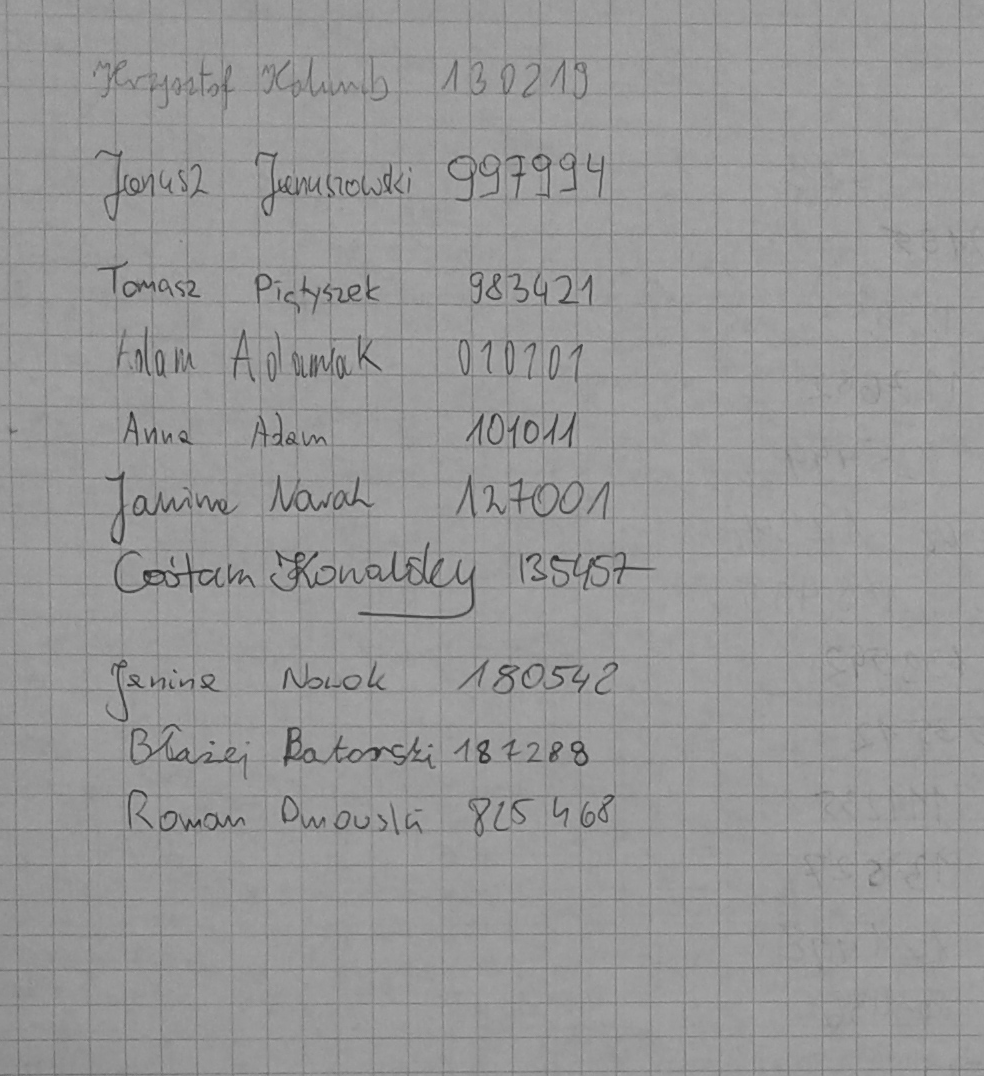 Krzysztof Kolumb 130219
Janusz Januszowski 997994
Tomasz Piętyszek 983421
Adam Adamiak 010101
Anna Adam 101011
Janina Nowak 127001
Cośtam Kowalsky 135457
Janina Nowak 180542
Błażej Batorski 187288
Roman Dmowski 825468